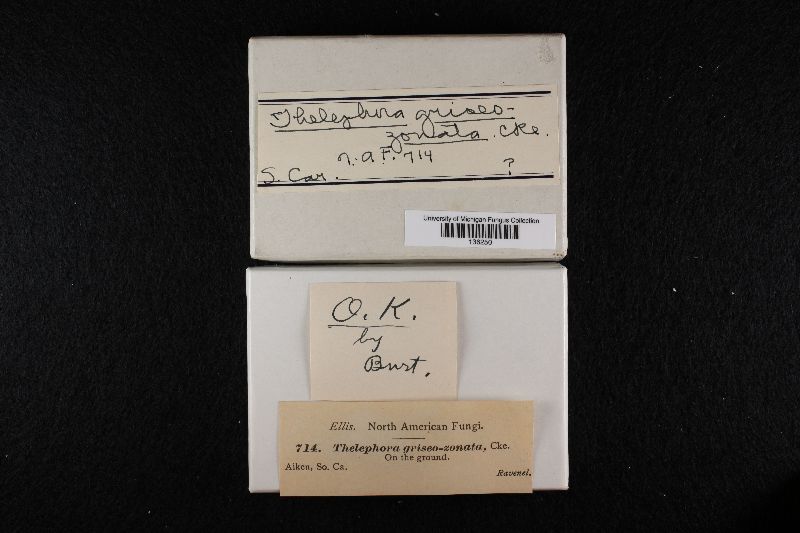 Thelephora griseo-
zonata. Cke.
N. A. F. 714
S. Car. ?
University of Michigan Fungus Collection
138250
O. K.
by
Burt.
Ellis. North American Fungi.
714. Thelephora griseo-zonata, Cke.
On the ground.
Aiken, So. Ca. Ravenel.